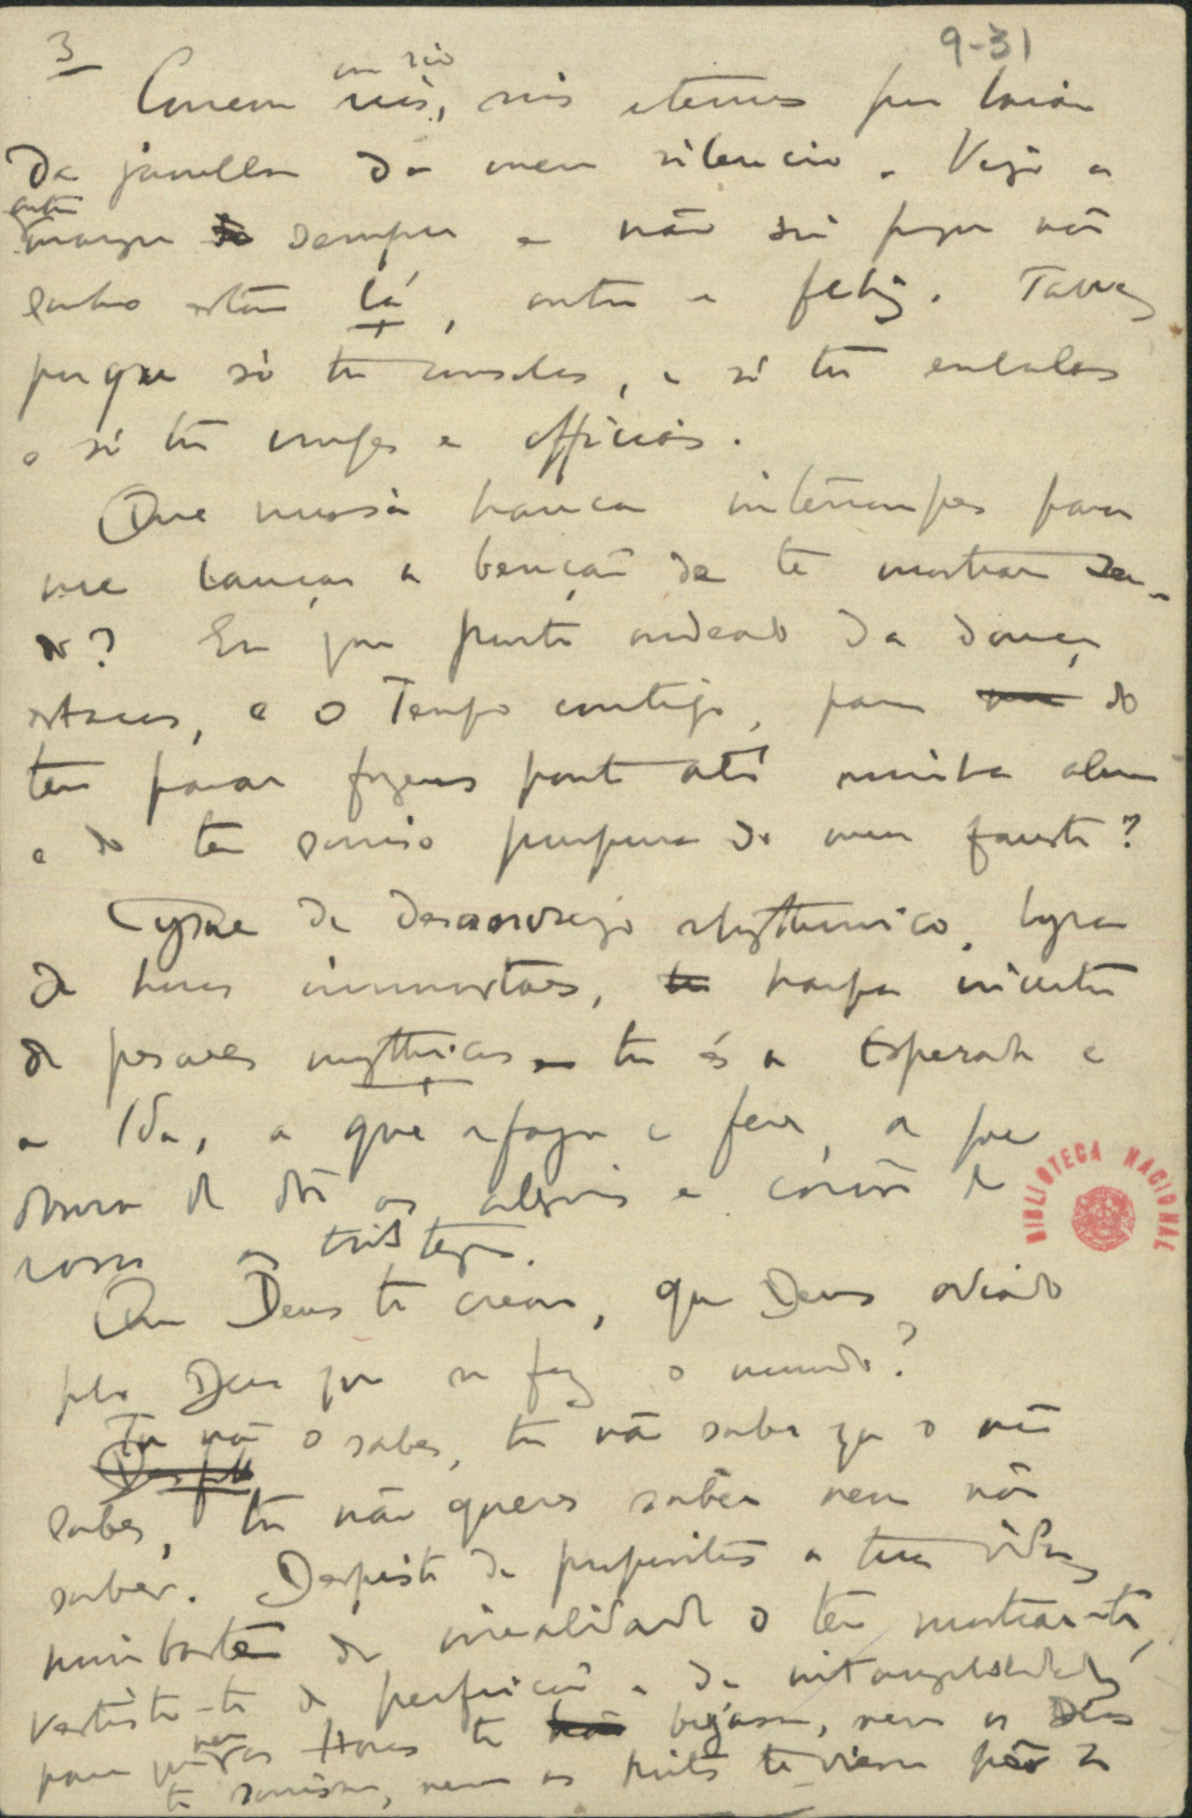 3
9-31
ou rio
Correm rios, rios eternos por baixo
da janella do meu silencio. Vejo a
outra
margem sempre e não sei porque não
sonho estar lá, outro e feliz. Talvez
porque só tu consolas, e só tu embalas
e só tu unges e officias.
Que missa branca interrompes para
me lançar a benção de te mostrar sen-
do? Em que ponto ondeado da dança
estacas, e o Tempo comtigo, para do
teu parar fazeres ponte até minha alma
e do teu sorriso purpura do meu fausto?
Cysne de desassocego rhythmico, lyra
de horas immortaes, harpa incerta
de pesares mythicos – tu és a Esperada e
a Ida, a que afaga e fere, a que
doura de dôr as alegrias e corôa de
rosas as tristezas.
Que Deus te creou, que Deus odiado
pelo Deus que se fez o mundo?
Tu não o sabes, tu não sabes que o não
sabes, tu não queres saber nem não
saber. Despiste de propositos a tua vida,
nimbaste de irrealidade o teu mostrar-te,
vestiste-te de perfeição e de intangibilidade,
para que nem as Horas te beijassem, nem os Dias
te sorrissem, nem as Noites te viessem pôr a
BIBLIOTECA NACIONAL